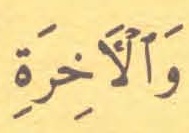 وَٱلْأَخِرَةِ